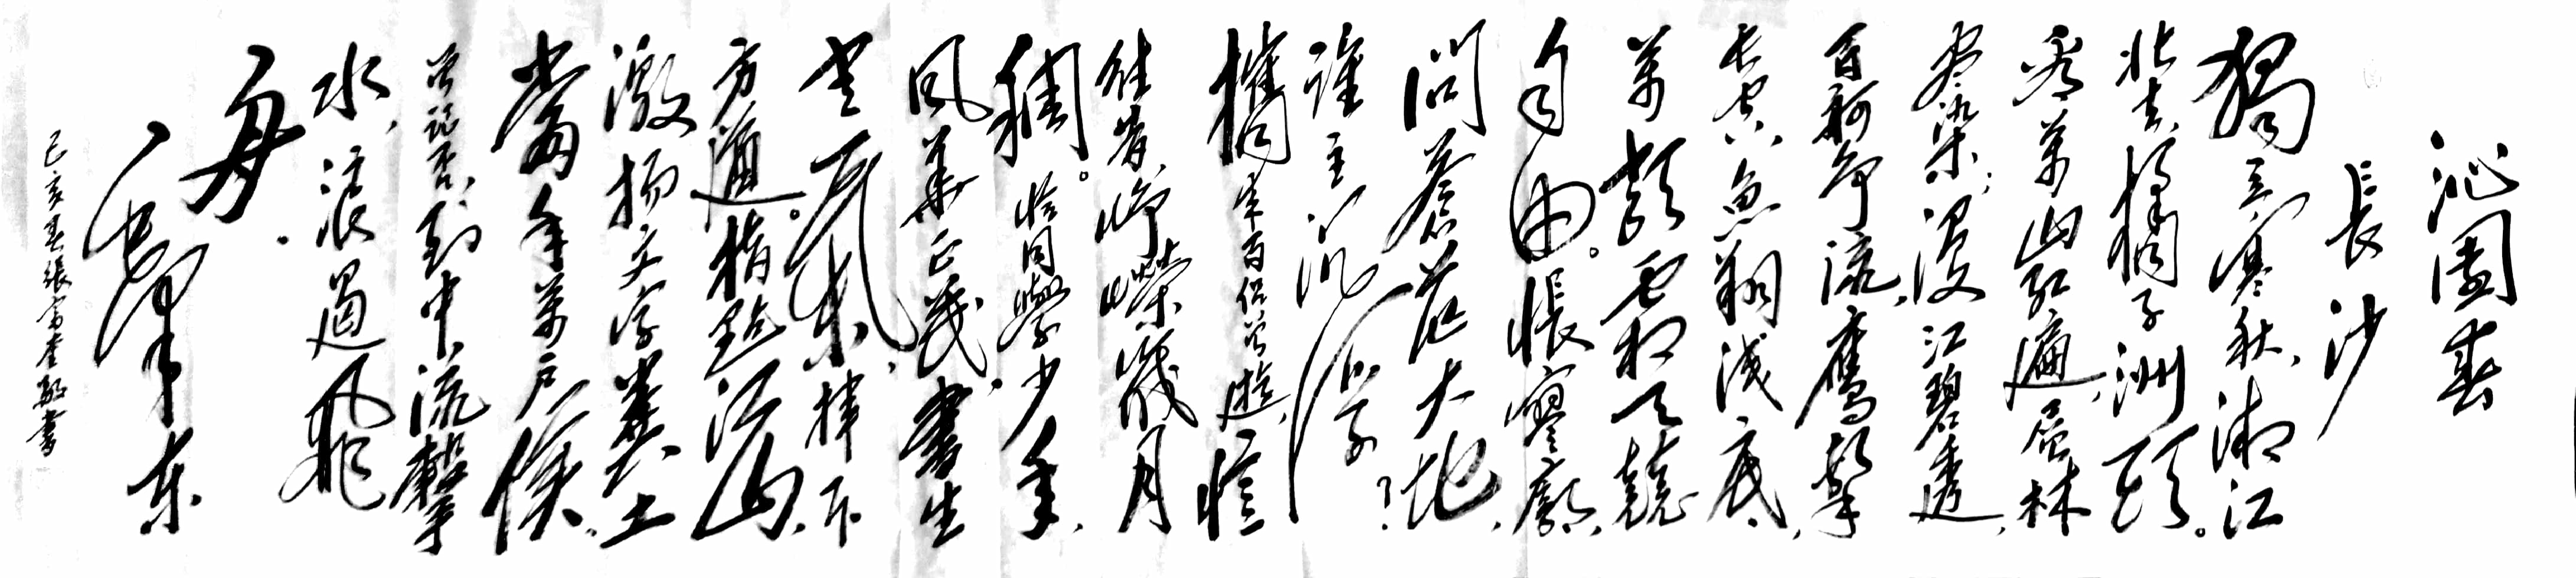 沁園春
長沙
獨立寒秋，湘江
北去，橘子洲頭。
看萬山紅遍，层林
尽染；漫江碧透，
百舸争流。鷹擊
長空，魚翔浅底，
萬類霜天競
自由。悵寥廓，
問蒼茫大地，
誰主沉浮？
攜来百侣曾遊，憶
往昔，崢嶸歲月
稠。恰同學少年，
风華正茂；書生
意氣，揮斥
方遒。指點江山，
激揚文字，糞土
當年萬户侯。
曾记否，到中流擊
水，浪遏飛
舟。
毛澤东
己亥春張富奎敬書